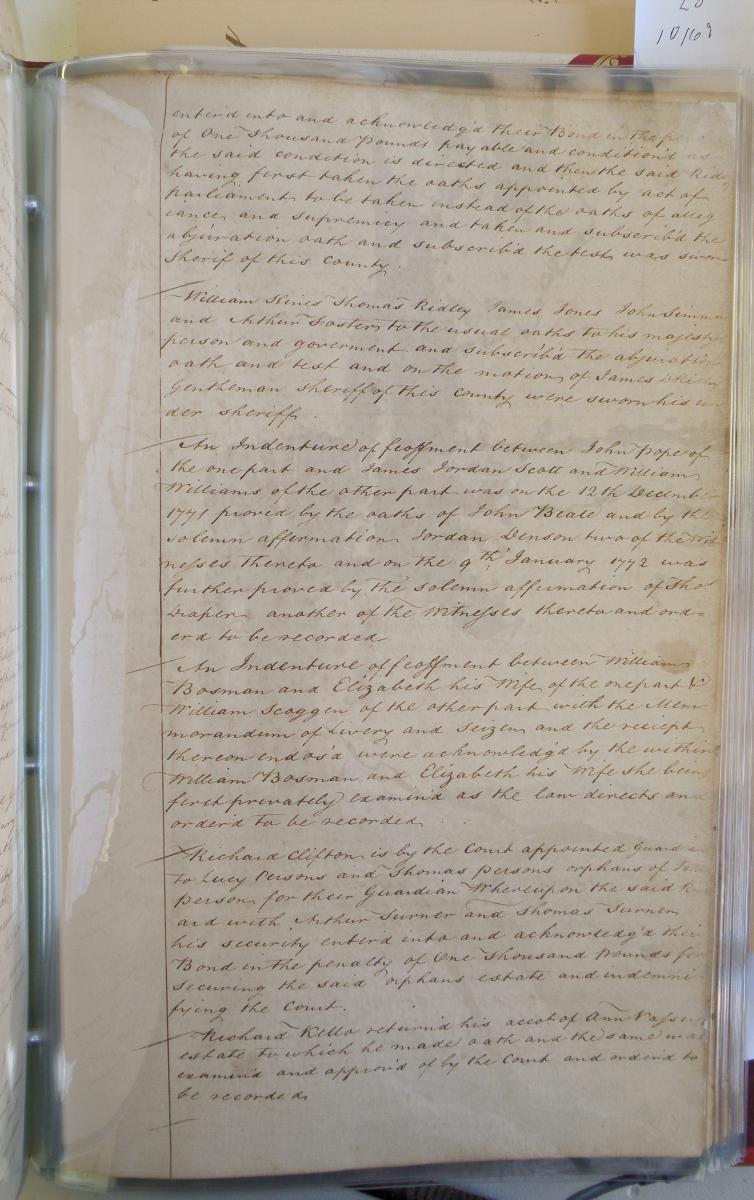 10/69
enterd into and acknowledg'd their Bond in the
of One Thousand Pounds payable and condition'd as
the said condition is directed and then the said Ridl
having first taken the oaths appointed by act of
parliament to be taken instead of the oaths of alleg
iance and supremicy and taken and subscrib'd the
abjuration oath and subscrib'd the test was sworn
Sherif of this County.
William Kines Thomas Ridley James Jones John Simmo
and Arthur Foster to the usual oaths to his majesty
person and goverment and subscrib'd the abjuration
oath and test and on the motion of James Ridley
Gentleman sheriff of this County were sworn his un
der sheriffs.
An Indenture of feoffment between John Pope of
the one part and James Jordan Scott and William
Williams of the other part was on the 12th Decembe
1771 proved by the oaths of John Beale and by the
solemn affermation Jordan Denson two of the Wit
nesses thereto and on the 9th January 1772 was
further proved by the solemn affirmation of Thos
Draper another of the Witnesses thereto and ord=
erd to be recorded
An Indenture of feoffment between William
Bosman and Elizabeth his Wife of the one part &
William Scoggen of the other part with the Mem
morandum of Livery and Seizen and the reciept
thereon endos'd were acknowledg'd by the within
William Bosman and Elizabeth his Wife she being
first privately examin'd as the law directs and
order'd to be recorded
Richard Clifton is by the Court appointed Guardian
to Lucy Persons and Thomas Persons orphans of
Person for their Guardian Whereupon the said R
ard with Arthur Turner and Thomas Turner
his security enterd into and acknowledg'd their
Bond in the penalty of One Thousand Pounds for
securing the said orphans estate and indemni
fying the Court.
Richard Kello return'd his accot of Ann Vasser
estate to which he made oath and the same was
examin'd and approv'd of by the Court and orderd to
be recorded